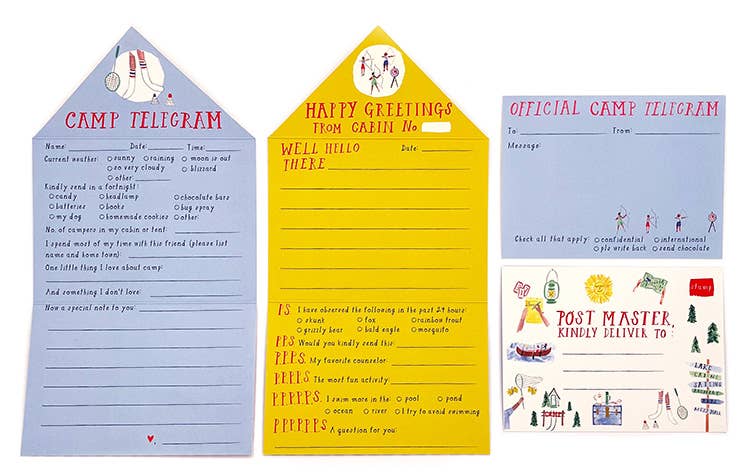 CAMP TELEGRAM
Name: Date: Time:
Current weather: sunny raining moon is out
so very cloudy blizzard
other:
Kindly send in a fortnight:
candy headlamp chocolate bars
batteries books bug spray
my dog homemade cookies other:
No. of campers in my cabin or tent:
I spend most of my time with this friend (please list
name and home town):
One little thing I love about camp:
And something I don't love:
Now a special note to you:
HAPPY GREETINGS
FROM CABIN No.
WELL HELLO Date:
THERE
PS I have observed the following in the past 24 hours:
skunk fox rainbow trout
grizzly bear bald eagle mosquito
PPS Would you kindly send this:
PPPS. My favorite counselor:
PPPPS The most fun activity:
PPPPPS. I swim more in the: pool pond
ocean river I try to avoid swimming
PPPPPPS A question for you:
OFFICIAL CAMP TELEGRAM
To: From:
Message:
Check all that apply: confidential international
pls write back send chocolate
stamp
POST MASTER,
KINDLY DELIVER TO:
LAKE